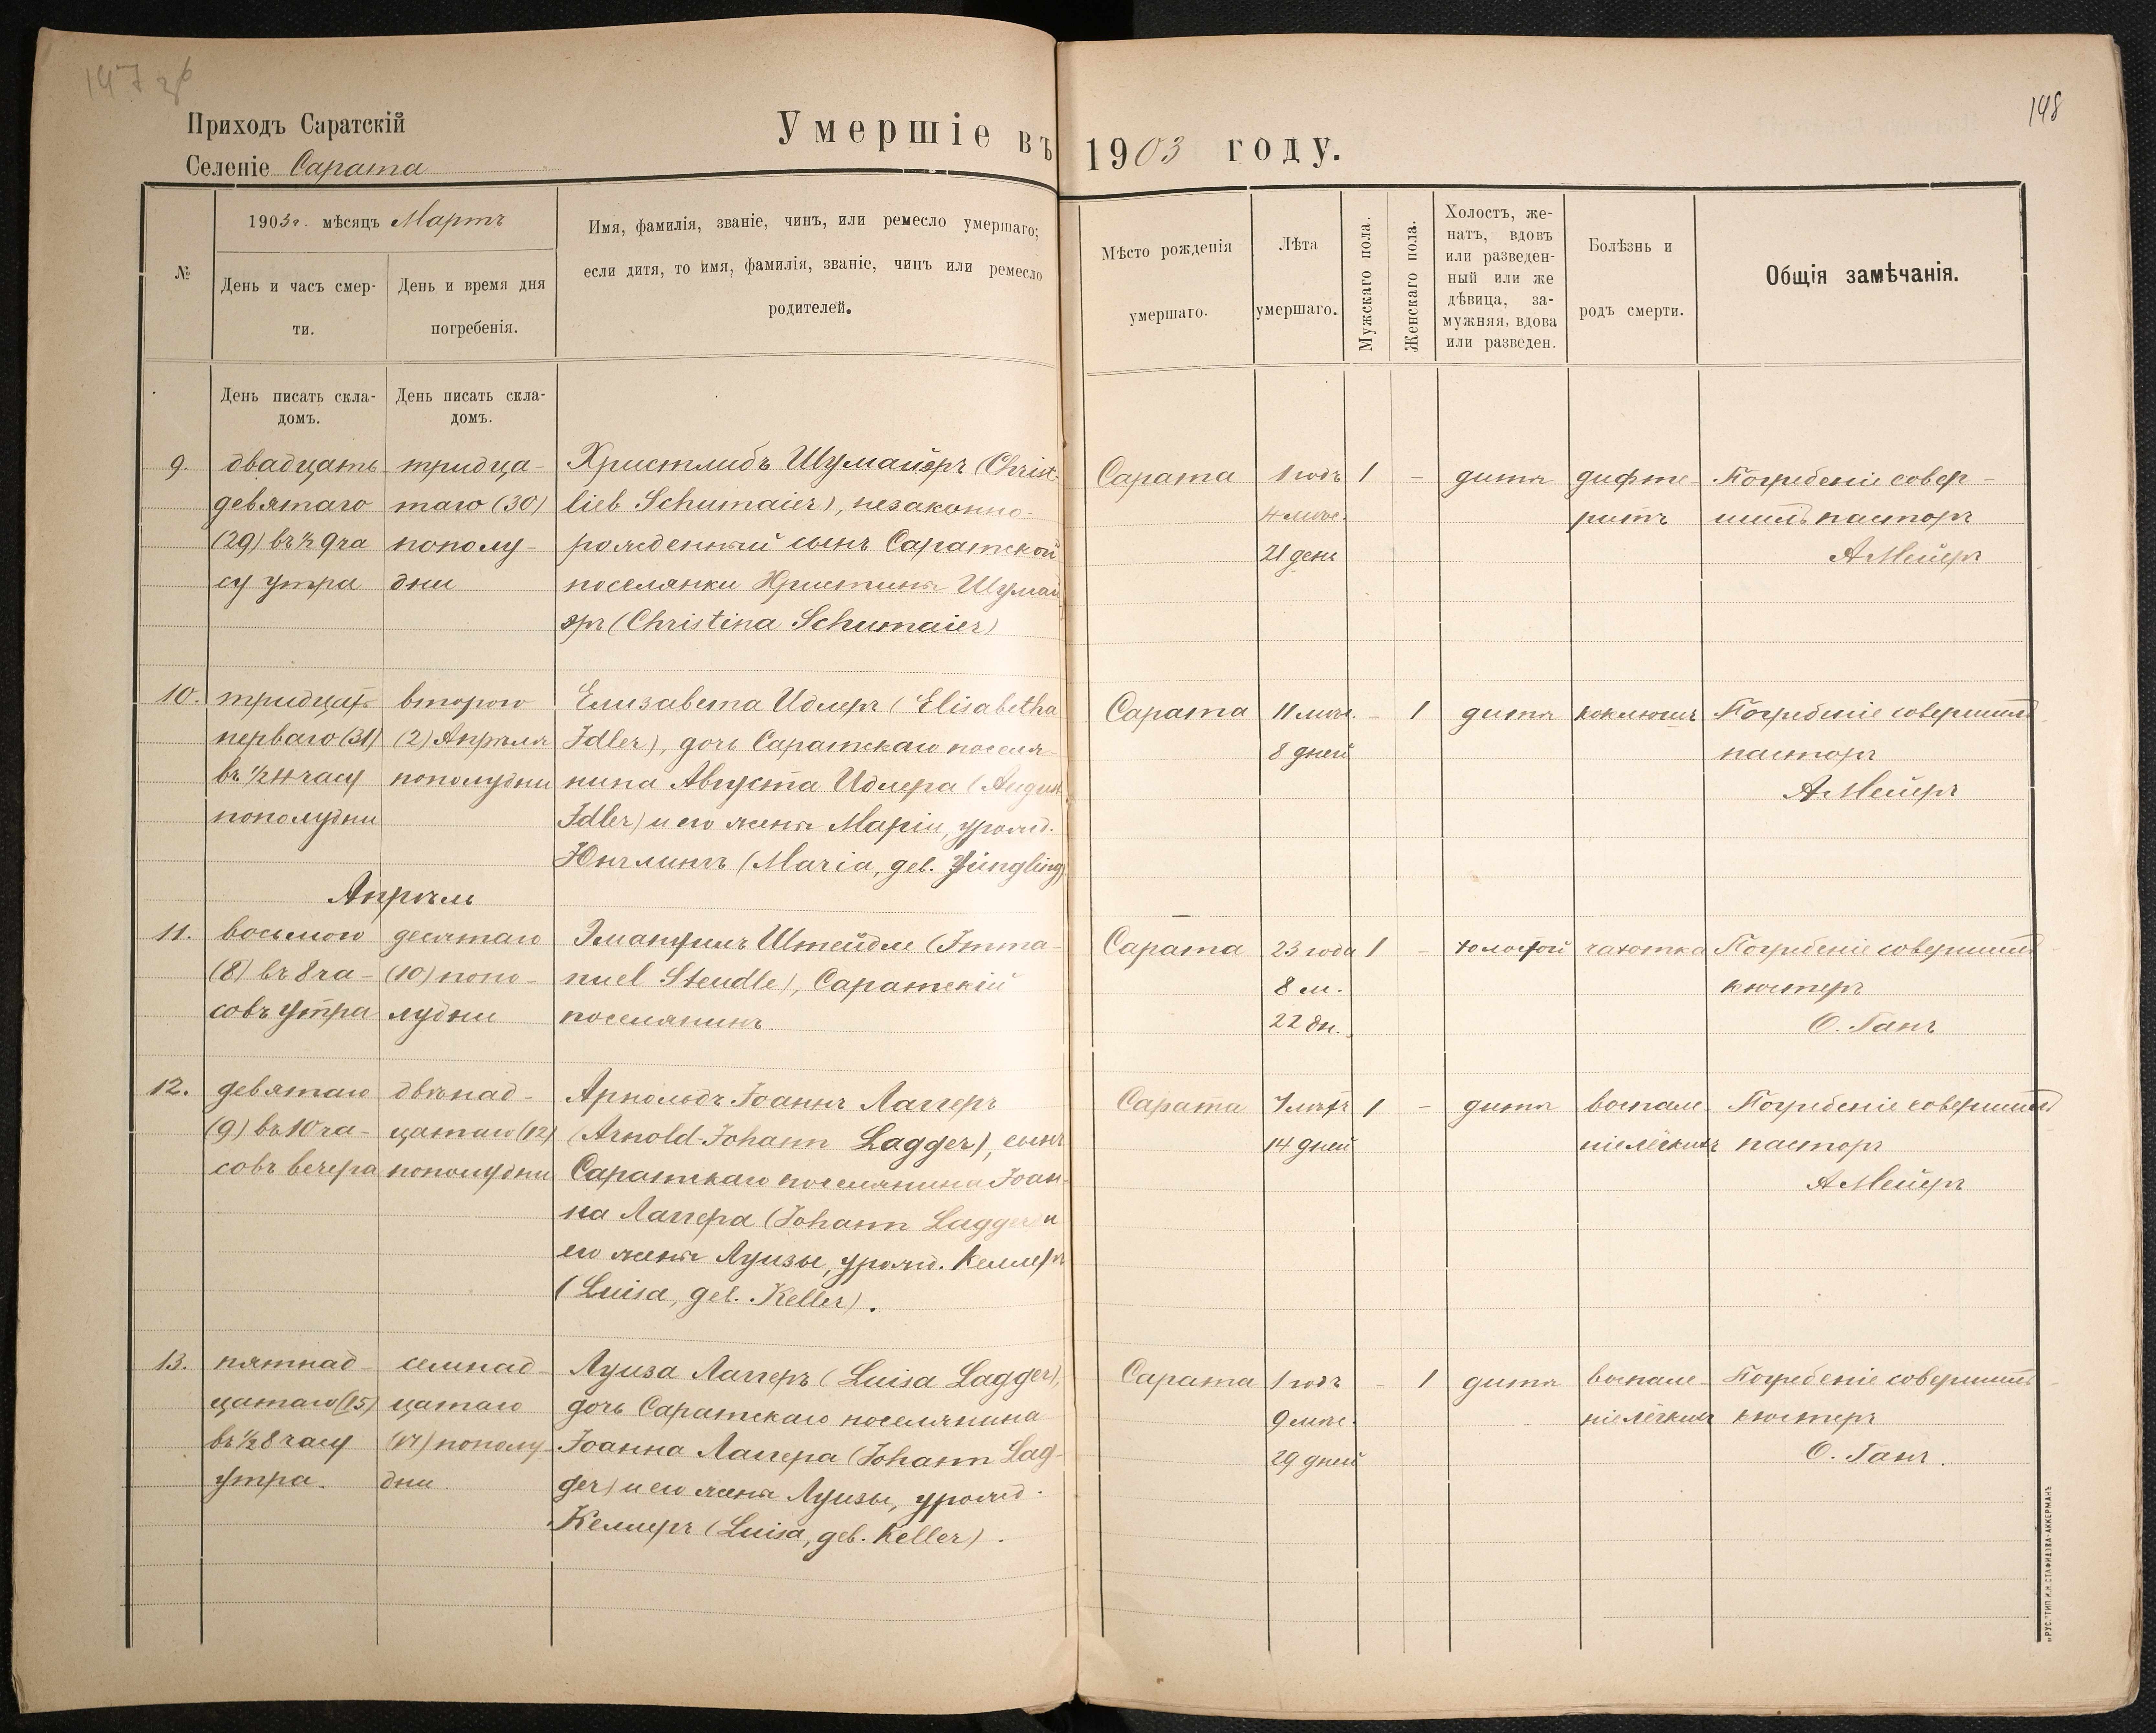 147 зв
148
Приходъ Саратскій
Селеніе Сарата
Умершіе въ 1903 году.
№
1903 г. мѣсяцъ Мартъ
День и часъ смер-
ти.
День и время дня
погребенія.
Имя, фамилія, званіе, чинъ, или ремесло умершаго;
если дитя, то имя, фамилія, званіе, чинъ или ремесло
родителей.
Мѣсто рожденія
умершаго.
Лѣта
умершаго.
Мужскаго пола.
Женскаго пола.
Холостъ, же-
натъ, вдовъ
или разведен-
ный или же
дѣвица, за-
мужняя, вдова
или разведен.
Болѣзнь и
родъ смерти.
Общія замѣчанія.
День писать скла-
домъ.
День писать скла-
домъ.
9.
двадцать
девятаго
(29) въ ½ 9 ча
су утра
тридца-
таго (30)
пополу-
дни
Христлибъ Шумайеръ (Christ-
lieb Schumaier), незаконно-
рожденный сынъ Саратской
поселянки Христины Шумай
эръ (Christina Schumaier)
Сарата
1 годъ
4 мѣс.
21 день
1
-
дитя
дифте-
ритъ
Погребеніе совер-
шилъ пасторъ
А Мейеръ
10.
тридцать
перваго (31)
въ ½ 4 часу
пополудни
второго
(2) Апрѣля
пополудни
Елизавета Идлеръ (Elisabetha
Idler), дочь Саратскаго поселя-
нина Августа Идлера (August
Idler) и его жены Маріи, урожд.
Юнглингъ (Maria, geb. Jüngling)
Сарата
11 мѣс.
8 дней
-
1
дитя
коклюшъ
Погребеніе совершилъ
пасторъ
А Мейеръ
Апрѣль
11.
восьмого
(8) въ 8 ча-
совъ утра
десятаго
(10) попо-
лудни
Эмануилъ Штейдле (Imma-
nuel Steudle), Саратскій
поселянинъ.
Сарата
23 года
8 м.
22 дн.
1
-
холостой
чахотка
Погребеніе совершилъ
кюстеръ
О. Ганъ
12.
девятаго
(9) въ 10 ча-
совъ вечера
двѣнад-
цатаго (12)
пополудни
Арнольдъ-Іоаннъ Лаггеръ
(Arnold-Johann Lagger), сынъ
Саратскаго поселянина Іоан-
на Лаггера (Johann Lagger) и
его жены Луизы, урожд. Келлеръ
(Luisa, geb. Keller).
Сарата
7 лѣтъ
14 дней
1
-
дитя
воспале-
ніе лёгкихъ
Погребеніе совершилъ
пасторъ
А Мейеръ
13.
пятнад-
цатаго (15)
въ ½ 8 часу
утра.
семнад-
цатаго
(17) пополу-
дни.
Луиза Лаггеръ (Luisa Lagger),
дочь Саратскаго поселянина
Іоанна Лаггера (Johann Lag-
ger) и его жены Луизы, урожд.
Келлеръ (Luisa, geb. Keller).
Сарата
1 годъ
9 мѣс.
29 дней
-
1
дитя
воспале-
ніе лёгкихъ
Погребеніе совершилъ
кюстеръ
О. Ганъ.